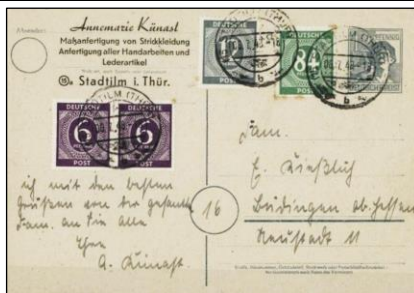 Absender:
Annemarie Künast
Maßanfertigung von Strickkleidung
Anfertigung aller Handarbeiten und
Lederartikel
Stadtilm i. Thür.
DEUTSCHE
POST
DEUTSCHE
84
POST
PFENNIG
STADTILM (THÜR)
b
DEUTSCHE
6
POST
DEUTSCHE
6
POST
ich mit den besten
Grüßen von dir
Fam. an Sie alle
Ihre
A. Künast.
16
Fam.
E.
Büdingen ob. Hessen
Neustadt 11